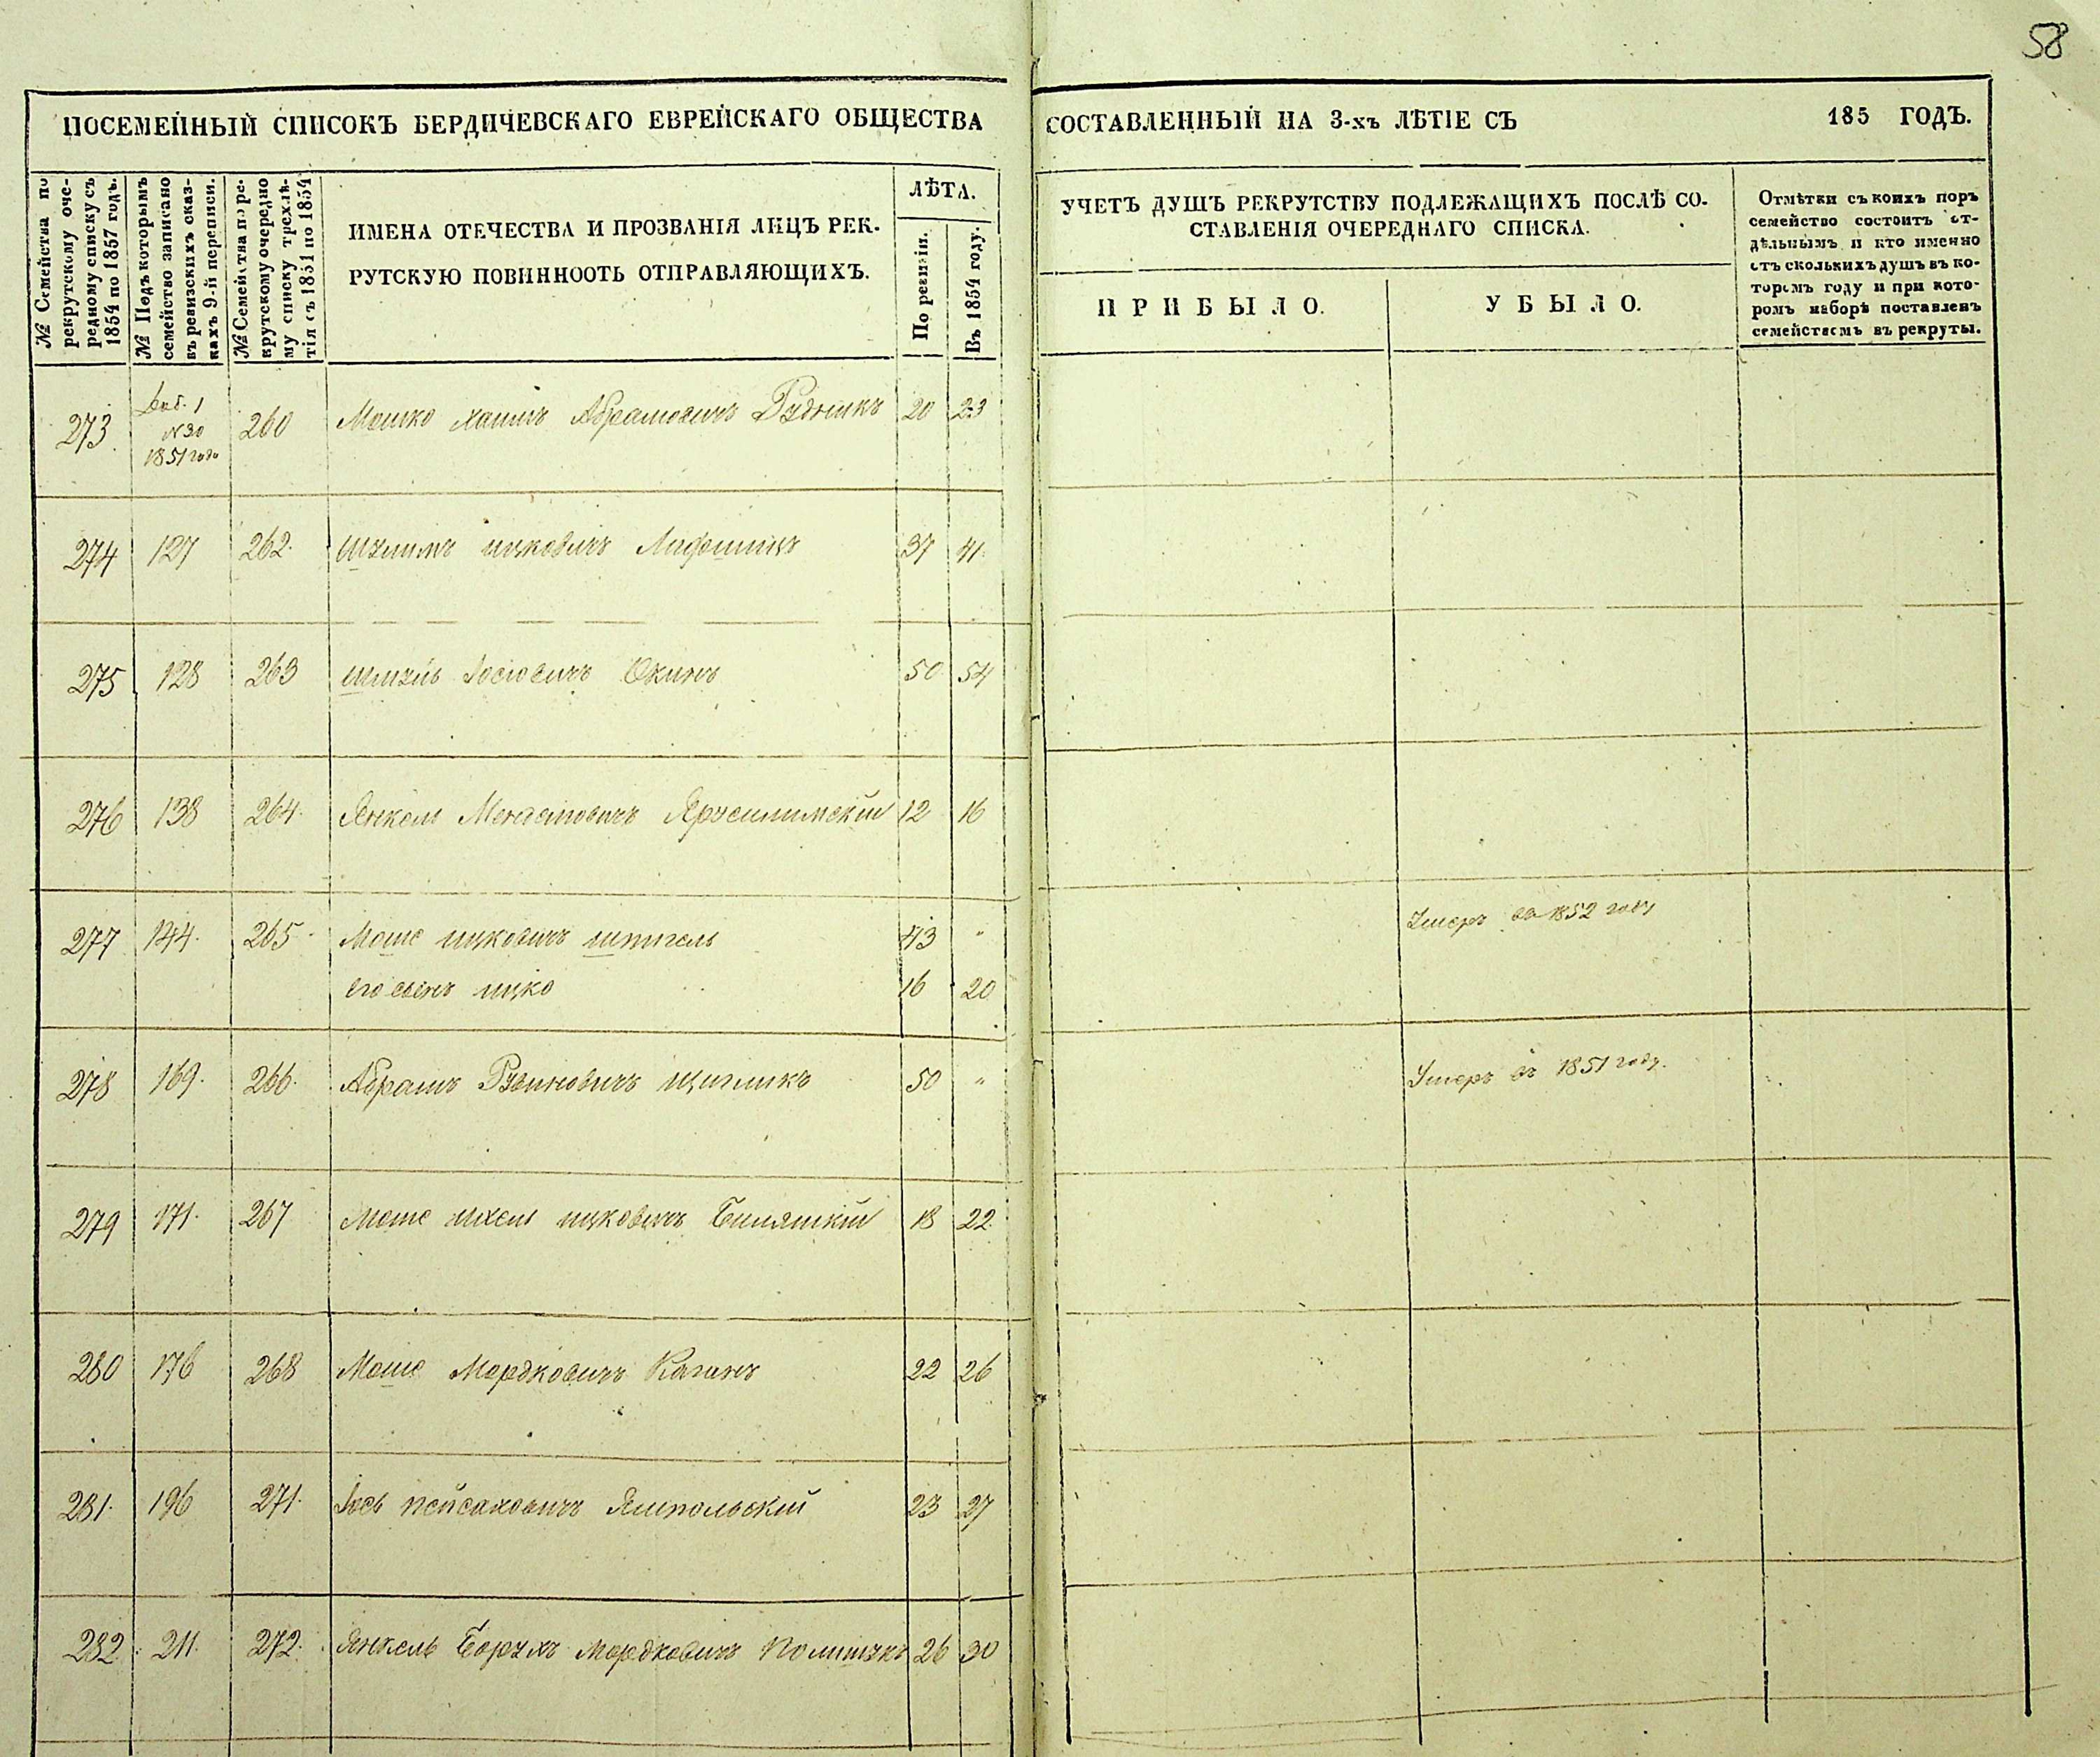 58
ПОСЕМЕЙНЫЙ СПИСОКЪ БЕРДИЧЕВСКАГО ЕВРЕЙСКАГО ОБЩЕСТВА
СОСТАВЛЕННЫЙ НА 3-хъ ЛѢТІЕ СЪ 185 ГОДЪ.
№ Семейства по
рекрутскому оче-
редному списку съ
1854 по 1857 годъ.
№ Подъ которымъ
семейство записано
въ ревизскихъ сказ-
кахъ 9-й переписи.
№ Семейства по ре-
крутскому очередно
му списку трехлѣ-
тія съ 1851 по 1854
ИМЕНА ОТЕЧЕСТВА И ПРОЗВАНІЯ ЛИЦЪ РЕК-
РУТСКУЮ ПОВИННООТЬ ОТПРАВЛЯЮЩИХЪ.
ЛѢТА.
По ревизіи.
Въ 1854 году.
УЧЕТЪ ДУШЪ РЕКРУТСТВУ ПОДЛЕЖАЩИХЪ ПОСЛѢ СО-
СТАВЛЕНІЯ ОЧЕРЕДНАГО СПИСКА.
ПРИБЫЛО.
УБЫЛО.
Отмѣтки съ коихъ поръ
семейство состоитъ от-
дѣльнымъ и кто именно
отъ сколькихъ душъ въ ко-
торомъ году и при кото-
ромъ наборѣ поставленъ
семействомъ въ рекруты.
273 Доб. 1 260 Мошко Хаимъ Абрамовичъ Рудникъ 20 23
№30
1851 года
274 127 262. Шулимъ Ицковичъ Лифшицъ 37 41.
275 128 263 Шмуль Іосіовичъ 50 54
276 138 264. Янкель Менделовичъ Ярусилимскій 12 16
277 144. 265 Моше Ицковичъ Шпигель 43 " Умеръ въ 1852 году
Его сынъ Ицко 16 20
278 169. 266. Абрамъ Рувиновичъ 50 " Умеръ въ 1851 году.
279 171. 267 Моше Ихель Ицковичъ 18 22.
280 176 268 Моше Мордковичъ Каганъ 22 26
281. 196 271. Іось Пейсаховичъ Ямпольскій 23 27
282. 211. 272. Янкель Борухъ Мордковичъ Полищукъ 26 30